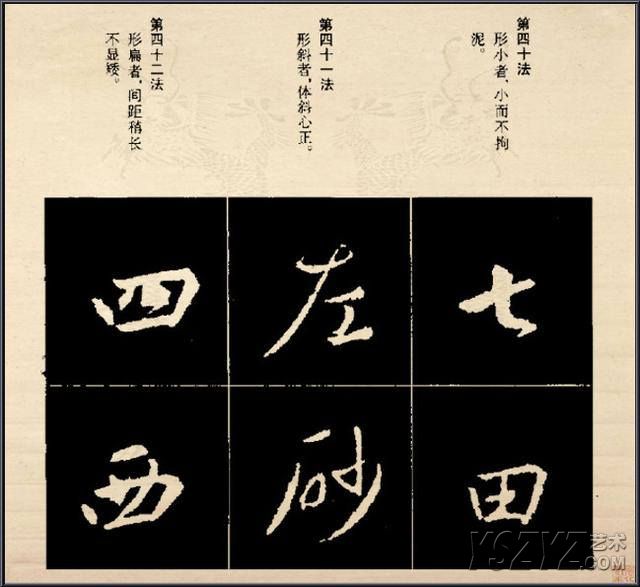 第四十法
形小者，小而不拘
泥。
七
田
第四十一法
形斜者，体斜心正。
左
砂
第四十二法
形扁者，间距稍长
不显矮。
四
西
YSZYZ艺术
.COM